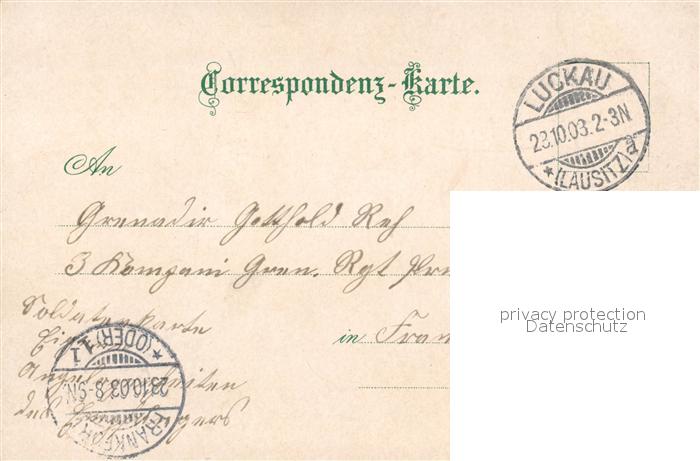 Correspondenz-Karte.
LUCKAU
23.10.03.2-3N
*(LAUSITZ)a
An
Grenadir Gotthold Reh
3 Kompani Gren. Rgt Pr
in Fran
Soldatenkarte
des
FRANKFUR
23.10.03.8-9N
*(ODER)1
privacy protection
Datenschutz